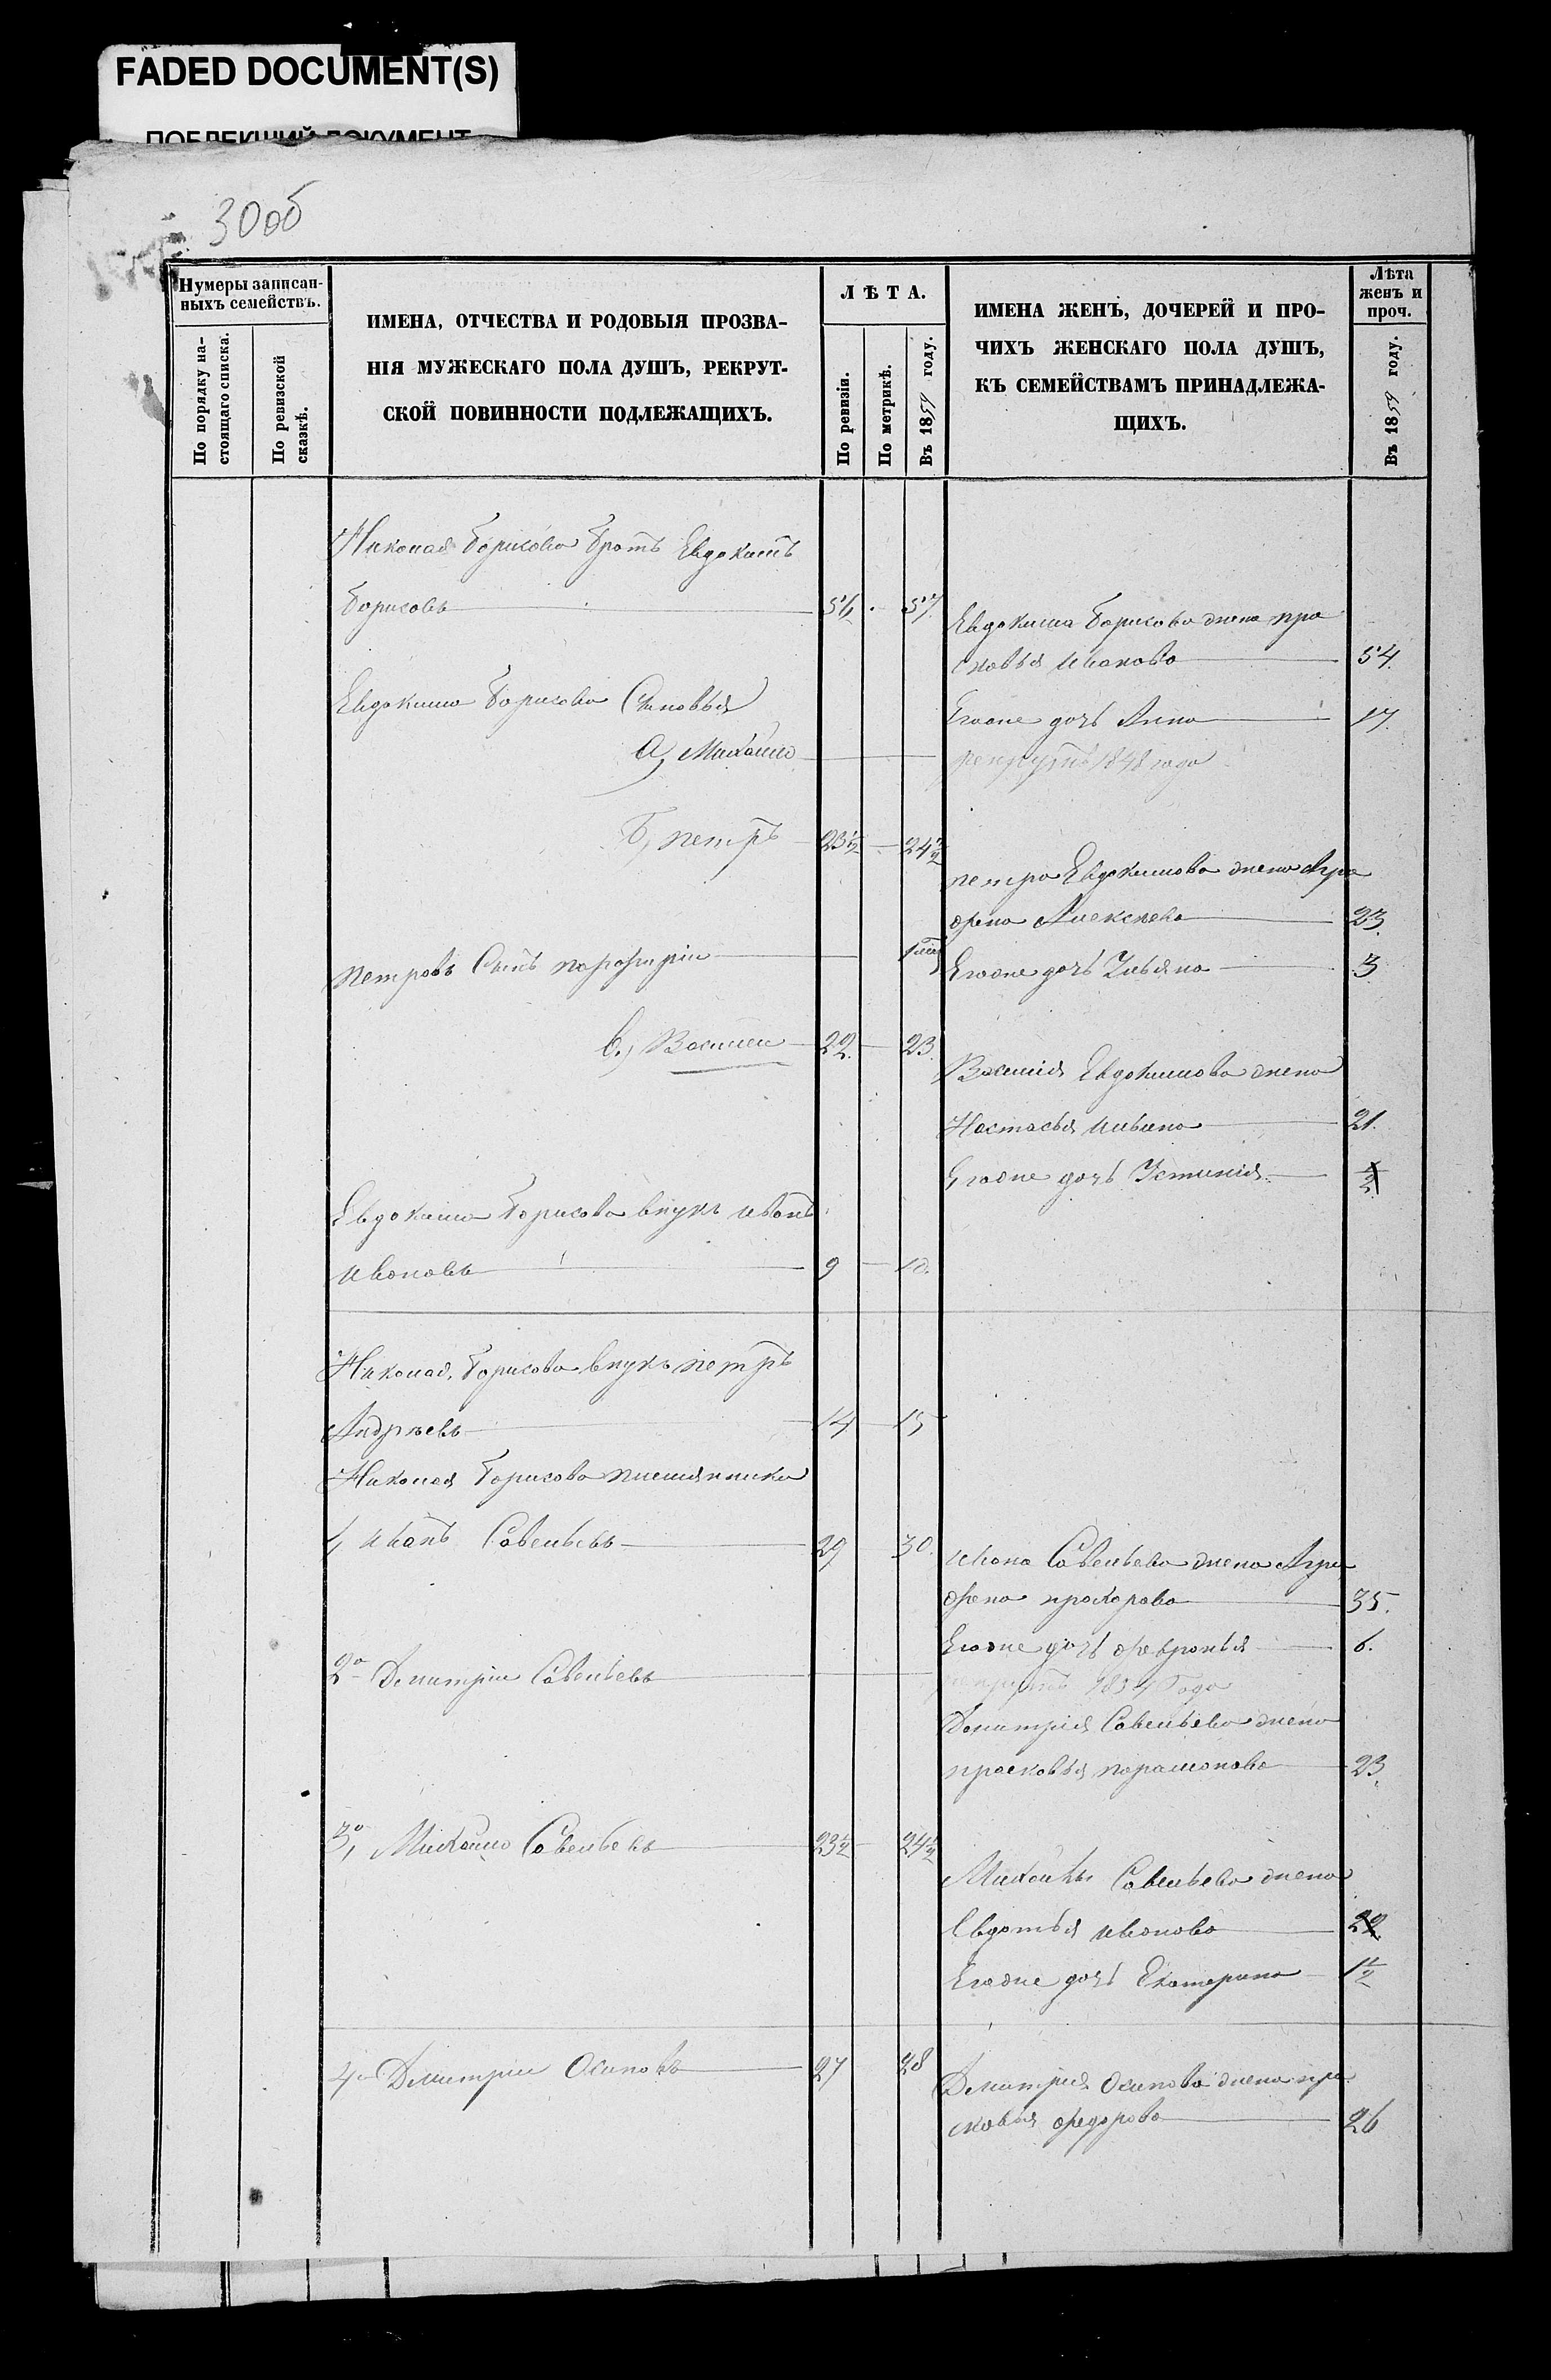 FADED DOCUMENT(S)
ПОБЛЕКШИЙ ДОКУМЕНТ
30об
Нумеры записан-
ныхъ семействъ.
По порядку на-
стоящаго списка.
По ревизской
сказкѣ.
ИМЕНА, ОТЧЕСТВА И РОДОВЫЯ ПРОЗВА-
НІЯ МУЖЕСКАГО ПОЛА ДУШЪ, РЕКРУТ-
СКОЙ ПОВИННОСТИ ПОДЛЕЖАЩИХЪ.
ЛѢТА.
По ревизіи.
По метрикѣ.
Въ 1859 году.
ИМЕНА ЖЕНЪ, ДОЧЕРЕЙ И ПРО-
ЧИХЪ ЖЕНСКАГО ПОЛА ДУШЪ,
КЪ СЕМЕЙСТВАМЪ ПРИНАДЛЕЖА-
ЩИХЪ.
Лѣта
женъ и
проч.
Въ 1859 году.
Николая Борисова братъ Евдокимъ
Борисовъ 56 57.
Евдокима Борисова жена пра
сковья Иванова 54.
Евдокима Борисова Сыновья
Егоже дочь Анна 17.
а, Михайло
рекрутъ 1848 года
б, петръ 23½ 24½
петра Евдокимова жена Агра
фена Алексѣева 23.
петровъ Сынъ порфирій
Егоже дочь Ульяна 3
в, Василий 22. 23.
Василія Евдокимова жена
Настасья Ильина 21.
Егоже дочь Устинія ½
Евдокима Борисова внукъ иванъ
ивановъ 9 10.
Николая Борисова внукъ петръ
Андрѣевъ 14 15
Николая Борисова племянники
1, иванъ Савельевъ 29 30.
ивана Савельева жена Агра
фена прохорова 35.
Егоже дочь февронья 6.
2, Дмитрій Савельевъ
рекрутъ 1854 Года
Дмитрія Савельева жена
прасковья парамонова 23.
3, Михайло Савельевъ 23½ 24½
Михайлы Савельева жена
Евдотья иванова 22
Егоже дочь Екатерина 1½
4, Дмитрій Осиповъ 27 28
Дмитрія Осипова жена пра
сковья федорова 26